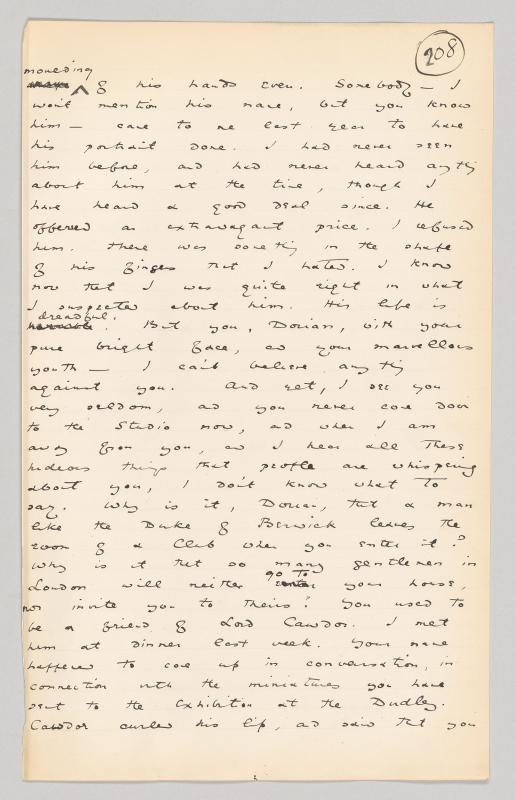 208
moulding
of his hands even. Somebody — I
won't mention his name, but you know
him — came to me last year to have
his portrait done. I had never seen
him before, and had never heard anything
about him at the time, though I
have heard a good deal since. He
offered an extravagant price. I refused
him. There was something in the shape
of his fingers that I hated. I know
now that I was quite right in what
I suspected about him. His life is
dreadful.
horrible. But you, Dorian, with your
pure bright face, and your marvellous
youth — I can't believe anything
against you. And yet, I see you
very seldom, and you never come down
to the Studio now, and when I am
away from you, and I hear all these
hideous things that people are whispering
about you, I don't know what to
say. Why is it, Dorian, that a man
like the Duke of Berwick leaves the
room of a Club when you enter it?
Why is it that so many gentlemen in
go to
London will neither enter your house,
nor invite you to theirs? You used to
be a friend of Lord Cawdor. I met
him at dinner last week. Your name
happened to come up in conversation, in
connection with the miniatures you have
sent to the Exhibition at the Dudley.
Cawdor curled his lip, and said that you